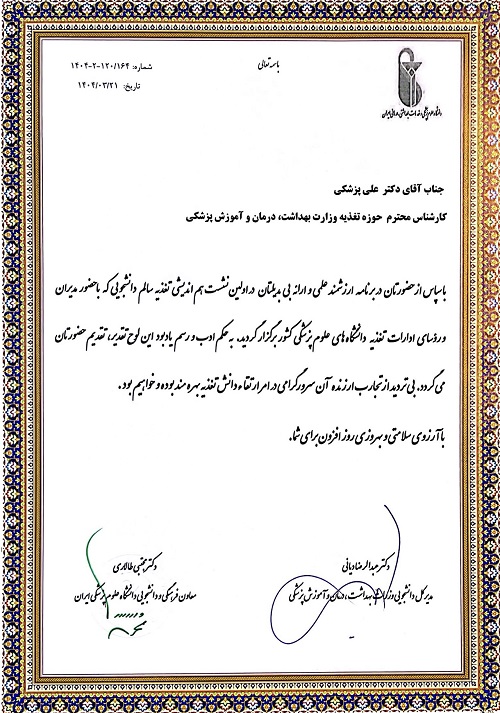 باسمه تعالی
شماره: ۱۴۰۴-۲-۱۲۰/۱۶۴
تاریخ: ۱۴۰۴/۰۳/۲۱
دانشگاه علوم پزشکی و خدمات بهداشتی درمانی ایران
جناب آقای دکتر علی پزشکی
کارشناس محترم حوزه تغذیه وزارت بهداشت، درمان و آموزش پزشکی
با سپاس از حضورتان در برنامه ارزشمند علمی و ارائه بی بدیلتان در اولین نشست هم اندیشی تغذیه سالم دانشجویی که با حضور مدیران
و رؤسای ادارات تغذیه دانشگاه های علوم پزشکی کشور برگزار گردید، به حکم ادب و رسم یادبود این لوح تقدیر، تقدیم حضورتان
می گردد. بی تردید از تجارب ارزنده آن سرور گرامی در امر ارتقاء دانش تغذیه بهره مند بوده و خواهیم بود.
با آرزوی سلامتی و بهروزی روز افزون برای شما.
دکتر عبدالرضا دیانی
مدیر کل دانشجویی وزارت بهداشت، درمان و آموزش پزشکی
دکتر مجتبی طالاری
معاون فرهنگی و دانشجویی دانشگاه علوم پزشکی ایران